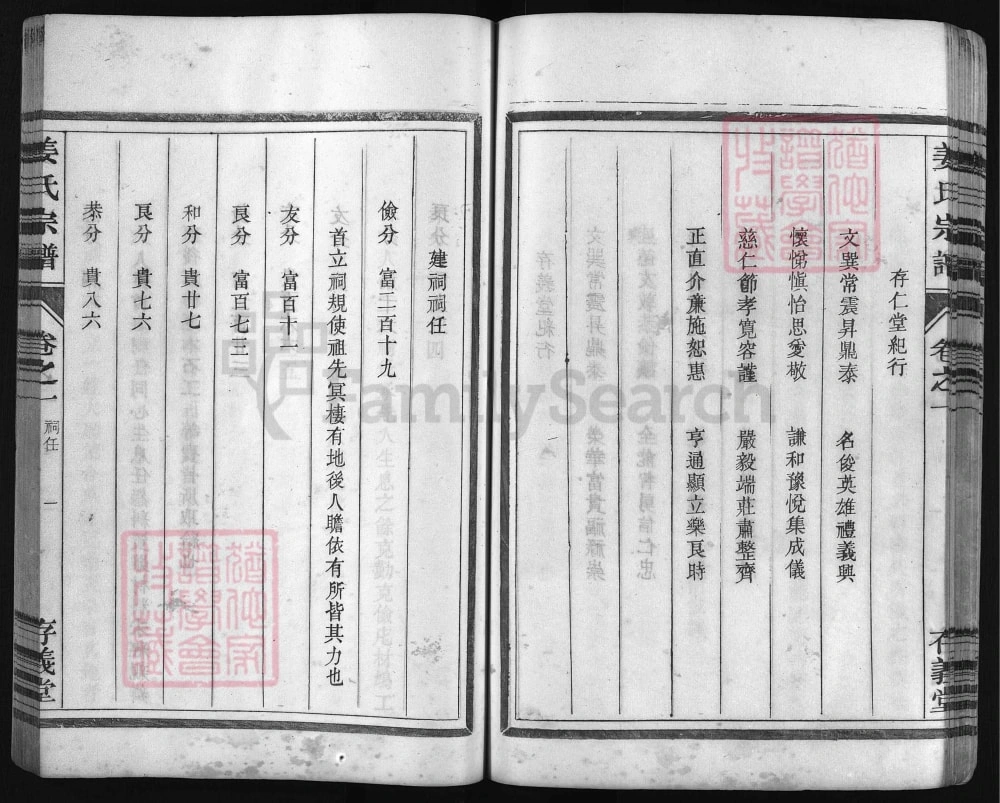 存仁堂紀行
文巽常震昇鼎泰　名俊英雄禮義興
懷惕愼怡思愛敬　謙和豫悅集成儀
慈仁節孝寬容謹　嚴毅端莊肅整齊
正直介廉施恕惠　亨通顯立樂良時
建祠祠任
儉分　富二百十九
首立祠規使祖先冥棲有地後人瞻依有所皆其力也
友分　富百十
良分　富百七
和分　貴廿七
良分　貴七六
恭分　貴八六
姜氏宗譜　卷之一　祠任　一　存義堂
姜氏宗譜　卷之一　存義堂
FamilySearch